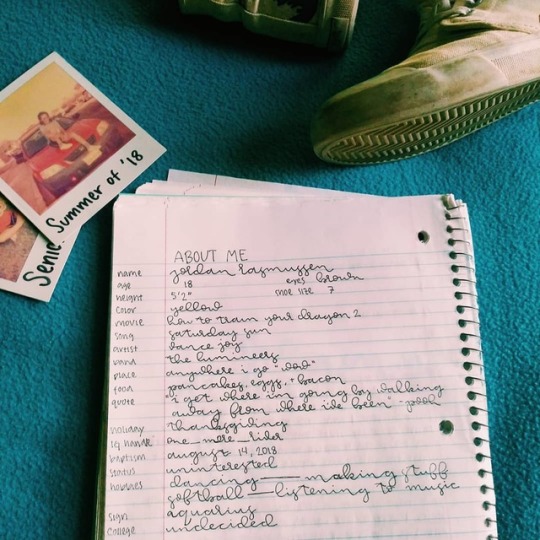 Summer of '18
Senio
ABOUT ME
name jordan rasmussen
age 18 eyes brown
height 5'2" shoe size 7
color yellow
movie how to train your dragon 2
song saturday sun
artist vance joy
band the lumineers
place anywhere i go "wow"
food pancakes, eggs, + bacon
quote "i get where i'm going by walking
away from where i've been" -pooh
holiday thanksgiving
ig handle one_more_rider
baptism august 14, 2018
status uninterested
hobbies dancing — making stuff
softball — listening to music
sign aquarius
college undecided